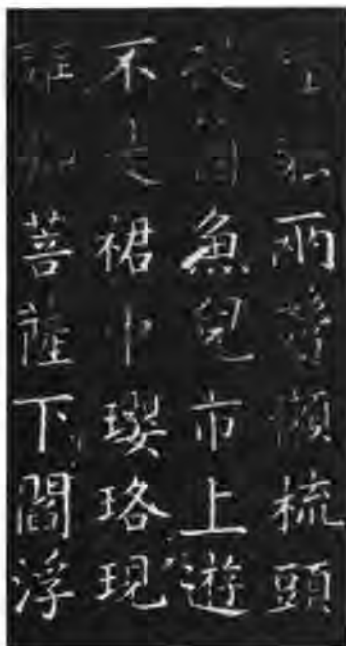 兩懶梳頭
魚兒市上遊
不是裙巾瓔珞現
誰知菩薩下閻浮